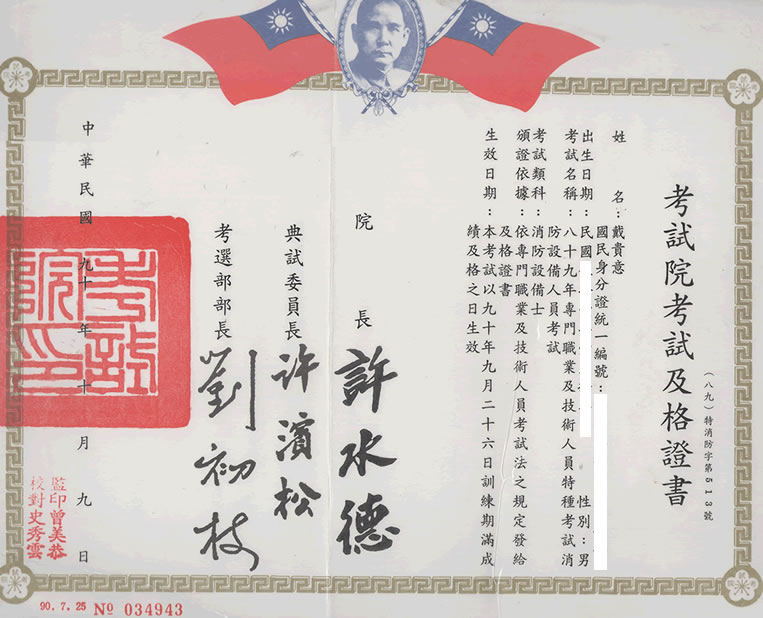 考試院考試及格證書
（八九）特消防字第513號
姓　　名：戴貴意
國民身分證統一編號：
出生日期：民國
性別：男
考試名稱：八十九年專門職業及技術人員特種考試消
防設備人員考試
考試類科：消防設備士
頒證依據：依專門職業及技術人員考試法之規定發給
及格證書
生效日期：本考試以九十年九月二十六日訓練期滿成
績及格之日生效
院　　長　許水德
典試委員長　許濱松
考選部部長　劉初枝
中華民國九十年十月九日
考試院印
監印曾美恭
校對史秀雲
90.7.25 № 034943